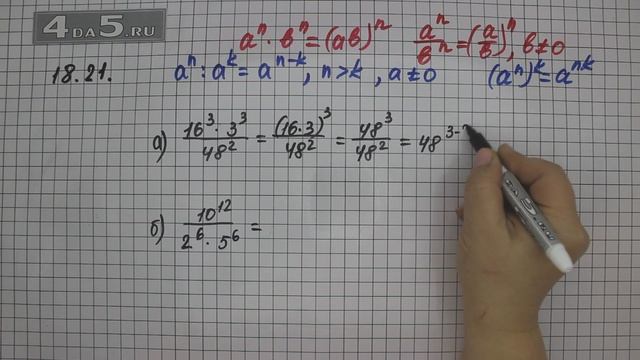 4DA5.RU
aⁿ · bⁿ = (ab)ⁿ   aⁿ/bⁿ = (a/b)ⁿ, b≠0
18.21.   aⁿ : aᵏ = aⁿ⁻ᵏ, n>k, a≠0   (aⁿ)ᵏ = aⁿᵏ
а) 16³ · 3³ / 48² = (16·3)³ / 48² = 48³ / 48² = 48³⁻
б) 10¹² / 2⁶ · 5⁶ =
4DA5.RU